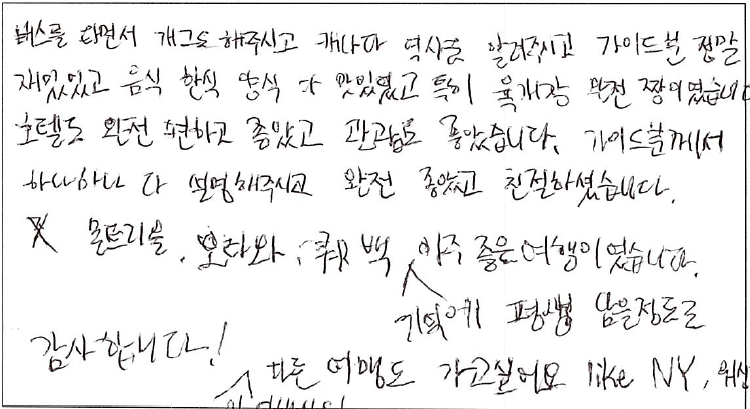 버스를 타면서 개그도 해주시고 캐나다 역사도 알려주시고 가이드분 정말
재밌있고 음식 한식 양식 다 맛있었고 특히 육개장 완전 짱이였습니다
호텔도 완전 편하고 좋았고 관광도 좋았습니다. 가이드분께서
하나하나 다 설명해주시고 완전 좋았고 친절하셨습니다.
몬트리올, 오타와, 퀘백 아주 좋은 여행이였습니다.
기억에 평생 남을정도로
감사합니다!
다른 여행도 가고싶어요 like NY,